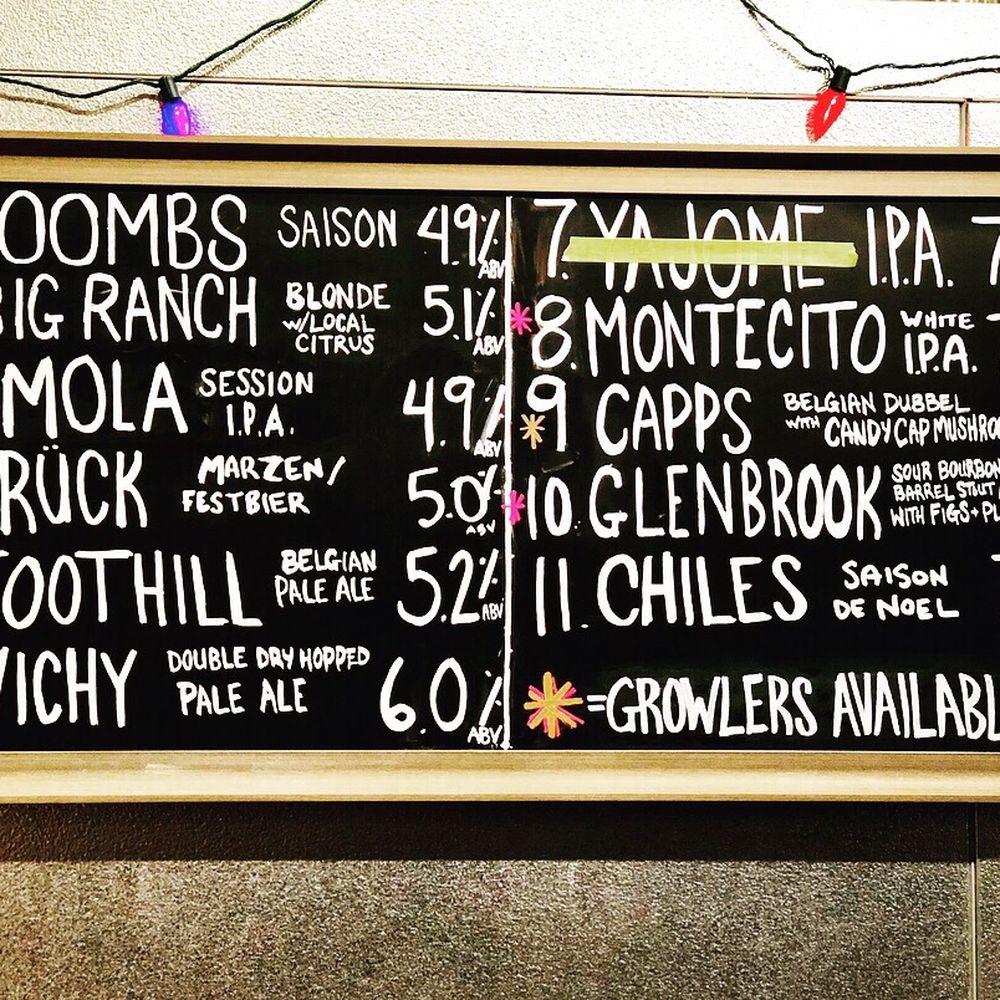 OOMBS SAISON 4.9% ABV
BIG RANCH BLONDE W/LOCAL CITRUS 5.1% ABV
MOLA SESSION I.P.A. 4.9% ABV
RÜCK MARZEN/ FESTBIER 5.0% ABV
OOTHILL BELGIAN PALE ALE 5.2% ABV
VICHY DOUBLE DRY HOPPED PALE ALE 6.0% ABV
7. YAJOME I.P.A. 7
8. MONTECITO WHITE I.P.A.
9 CAPPS BELGIAN DUBBEL WITH CANDY CAP MUSHRO
10. GLENBROOK SOUR BOURBON BARREL STOUT WITH FIGS + PL
11. CHILES SAISON DE NOEL
* = GROWLERS AVAILABL